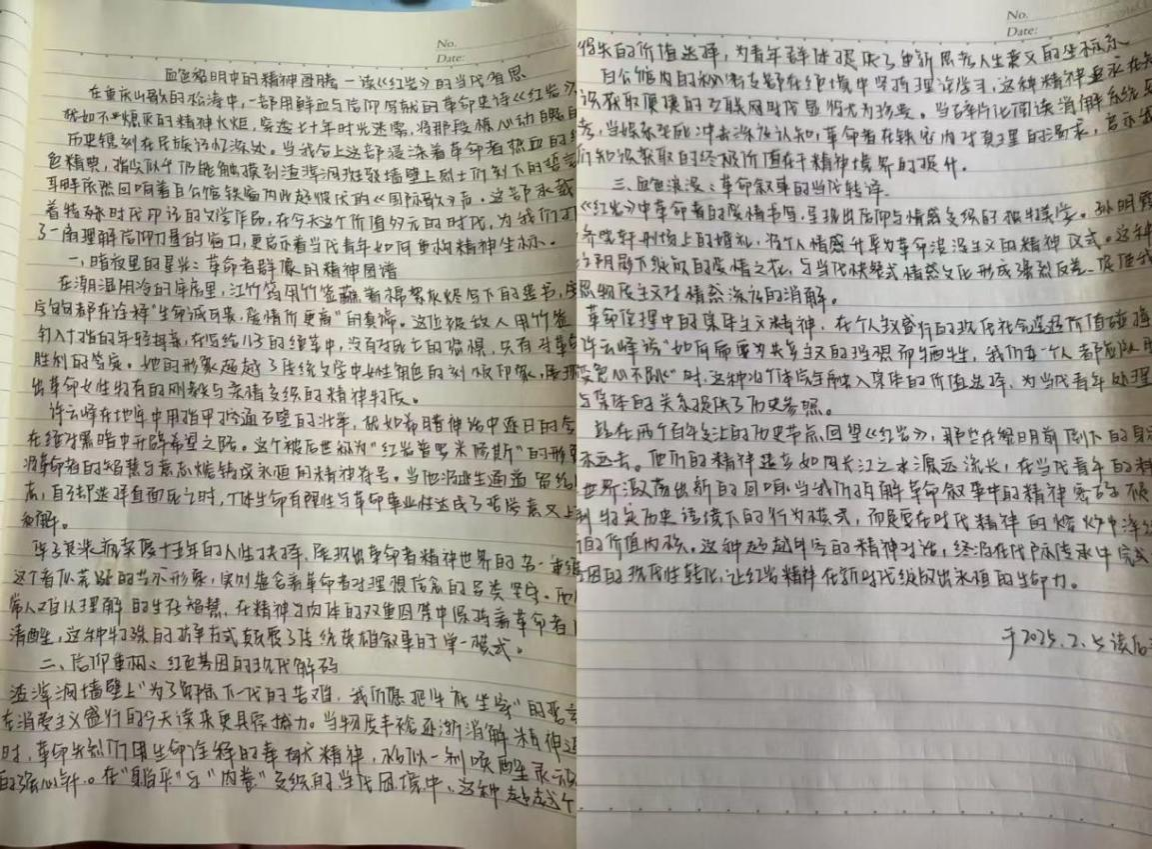 No.
Date:
血色黎明中的精神图腾—读《红岩》的当代省思
在重庆山歌的松涛中,一部用鲜血与信仰写就的革命史诗《红岩》
犹如不熄灭的精神火炬,穿透七十年时光迷雾,将那段惊心动魄的
历史镌刻在民族记忆深处。当我合上这部浸染着革命者热血的红
色精典,指尖似乎仍能触摸到渣滓洞斑驳墙壁上烈士们刻下的誓言
耳畔依然回响着白公馆铁窗内此起彼伏的《国际歌》声。这部承载
着特殊时代印记的文学作品,在今天这个价值多元的时代,为我们打
了一扇理解信仰力量的窗口,更启示着当代青年如何重构精神坐标。
一、暗夜里的星光:革命者群像的精神图谱
在潮湿阴冷的牢房里,江竹筠用竹签蘸着棉絮灰烬写下的遗书,字
字句句都在诠释“生命诚可贵,爱情价更高”的真谛。这位被敌人用竹签
钉入十指的年轻母亲,在留给儿子的绝笔中,没有对死亡的恐惧,只有对革命
胜利的笃定。她的形象超越了传统文学中女性角色的刻板印象,展现
出革命女性特有的刚毅与柔情交织的精神特质。
许云峰在地牢中用指甲挖通石壁的壮举,恰如希腊神话中逐日的
在绝对黑暗中开辟希望之路。这个被后世称为“红岩普罗米修斯”的形象
将革命者的智慧与意志熔铸成永恒的精神符号。当他将逃生通道留给
志,自己却选择直面死亡时,个体生命有限性与革命事业伟达成了哲学意义上
和解。
华子良装疯卖傻十五年的人生抉择,展现出革命者精神世界的另一重维
这个看似荒诞的艺术形象,实则蕴含着革命者对理想信念的另类坚守。他
常人难以理解的生存智慧,在精神与肉体的双重囚禁中保持着革命者
清醒,这种特殊的抗争方式颠覆了传统英雄叙事的单一模式。
二、信仰重构:红色基因的现代解码
渣滓洞墙壁上“为了免除下一代的苦难,我们愿把牢底坐穿”的誓言
在消费主义盛行的今天读来更具张力。当物质丰裕逐渐消解精神追
时,革命先烈们用生命诠释的奉献精神,恰似一剂唤醒灵魂
的强心针。在“躺平”与“内卷”交织的当代困境中,这种超越个
No.
Date:
得失的价值选择,为青年群体提供了重新思考人生意义的坐标系
白公馆内的秘密支部在绝境中坚持理论学习,这种精神追求在知
识获取便捷的互联网时代显得尤为珍贵。当碎片化阅读消解系统思
考,当娱乐至死冲击深度认知,革命者在铁窗内对真理的渴求,启示我
们知识获取的终极价值在于精神境界的提升。
三、血色浪漫:革命叙事的当代转译
《红岩》中革命者的爱情书写,呈现出信仰与情感交织的独特美学。孙明霞
齐晓轩刑场上的婚礼,将个人情感升华为革命浪漫主义的精神仪式。这种
阴影下绽放的爱情之花,与当代快餐式情感文化形成强烈反差,促使我
思物质主义对情感深度的消解。
革命伦理中的集体主义精神,在个人主义盛行的现代社会遭遇价值碰撞
许云峰说“如后需要为共产主义的理想而牺牲,我们每一个人都应该
红心不跳”时,这种将个体完全融入集体的价值选择,为当代青年处理
与集体的关系提供了历史参照。
站在两个百年交汇的历史节点回望《红岩》,那些在黎明前倒下的身
未远去。他们的精神遗产如同长江之水源远流长,在当代青年的精
世界激荡出新的回响。当我们拆解革命叙事中的精神密码,
到特定历史语境下的行为模式,而是要在时代精神的熔炉中淬
恒的价值内核。这种超越年代的精神对话,终将在代际传承中完成
基因的现代性转化,让红岩精神在新时代绽放出永恒的生命力。
于2025.2.5读后